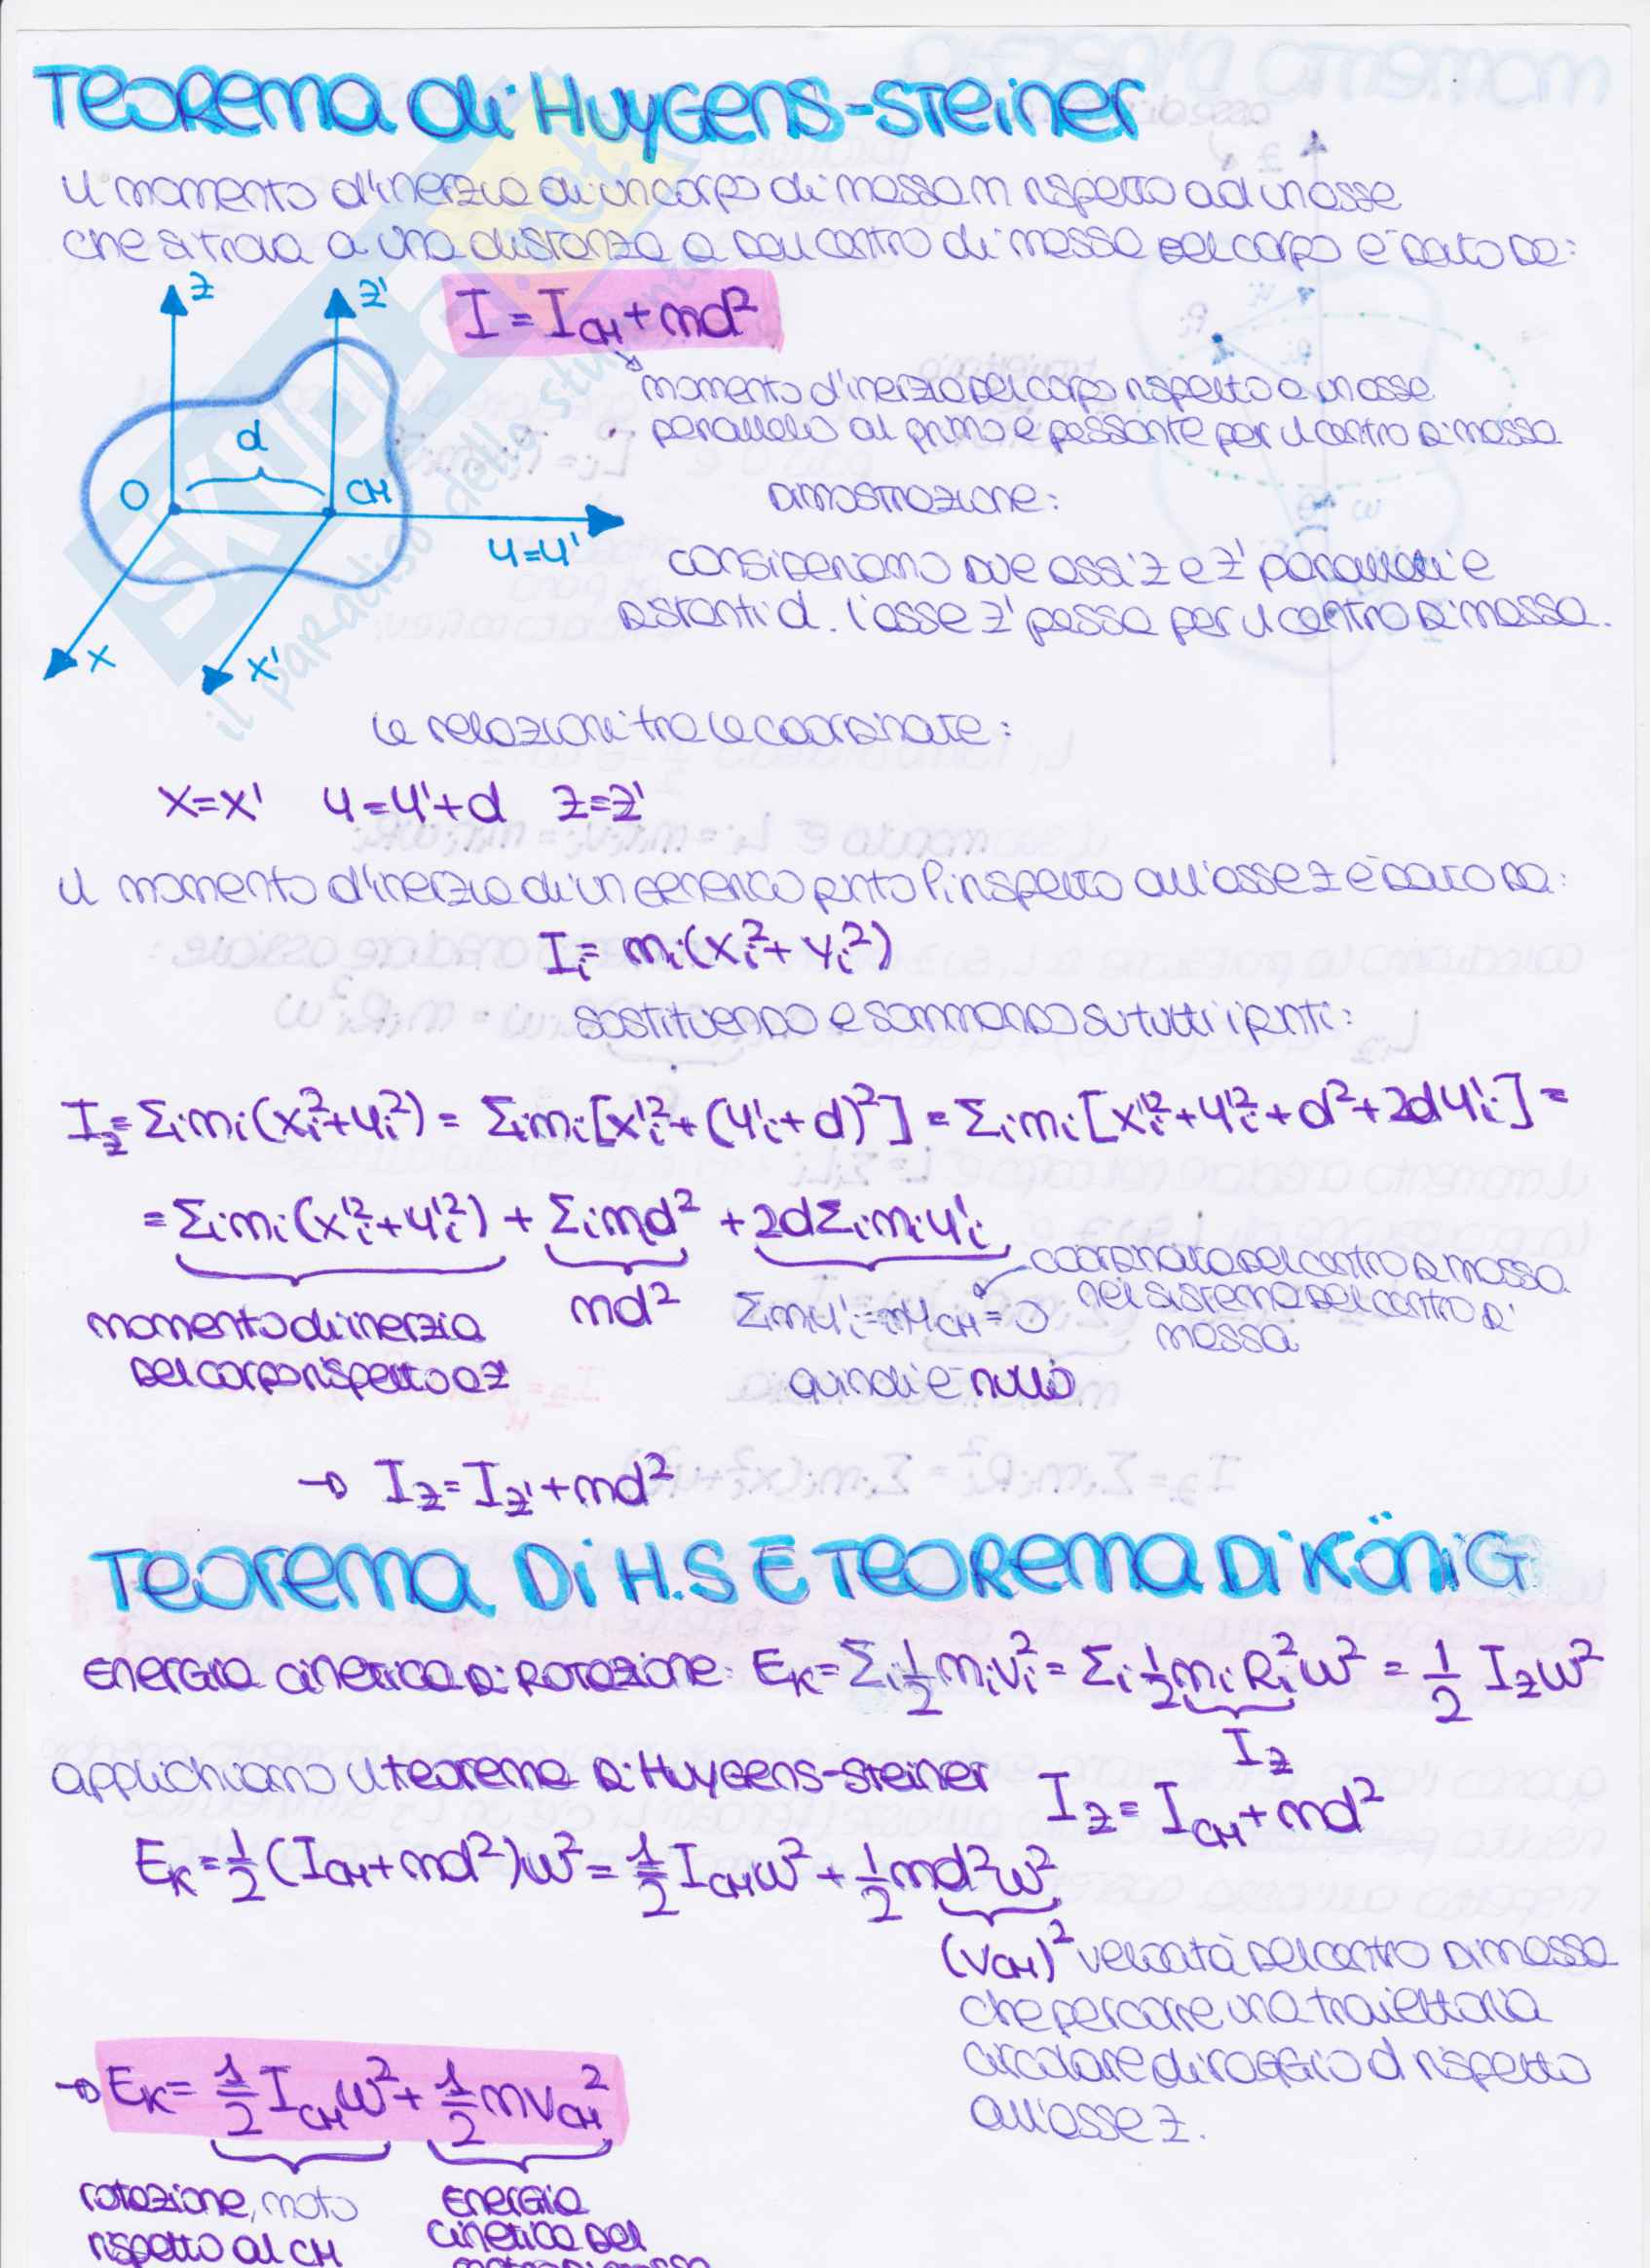 TEOREMA di HUYGENS-STEINER
il momento d'inerzia di un corpo di massa m rispetto ad un asse
che si trova a una distanza a dal centro di massa del corpo è dato da:
I = I_CM + md²
momento d'inerzia del corpo rispetto a un asse
parallelo al primo e passante per il centro di massa
z
z'
d
O
CM
y=y'
x
x'
dimostrazione:
consideriamo due assi z e z' paralleli e
distanti d. l'asse z' passa per il centro di massa.
le relazioni tra le coordinate:
x=x' y=y'+d z=z'
il momento d'inerzia di un generico punto Pi rispetto all'asse z è dato da:
Ii = mi(xi²+yi²)
sostituendo e sommando su tutti i punti:
Iz = Σi mi(xi²+yi²) = Σi mi[x'i²+(y'i+d)²] = Σi mi[x'i²+y'i²+d²+2dy'i] =
= Σi mi(x'i²+y'i²) + Σi md² + 2dΣi mi y'i
momento di inerzia
del corpo rispetto a z'
md²
Σmy'i = my_CM = 0
quindi è nullo
coordinata del centro di massa
nel sistema del centro di
massa
→ Iz = Iz' + md²
TEOREMA Di H.S E TEOREMA Di KÖNIG
Energia cinetica di rotazione: Ek = Σi ½ mi vi² = Σi ½ mi Ri² ω² = ½ Iz ω²
Iz
applichiamo il teorema di Huygens-Steiner Iz = I_CM + md²
Ek = ½ (I_CM + md²)ω² = ½ I_CM ω² + ½ md²ω²
(v_CM)² velocità del centro di massa
che percorre una traiettoria
circolare di raggio d rispetto
all'asse z.
→ Ek = ½ I_CM ω² + ½ mv_CM²
rotazione, moto
rispetto al CM
Energia
cinetica del
SKUOLA.net
il paradiso dello studente